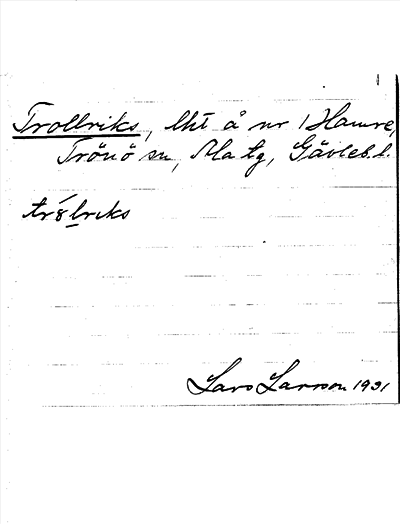 Trollriks, lht å nr 1 Hamre,
Trönö sn, Ala tg, Gävleb. l.
tr8lriks
Lars Larsson 1931